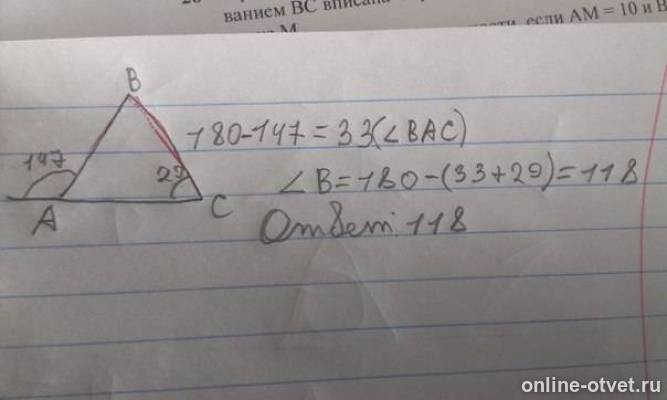 ванием BC вписана
если AM = 10 и B
B
180-147=33(∠BAC)
147
29
∠B=180-(33+29)=118
A
C
Ответ: 118
online-otvet.ru